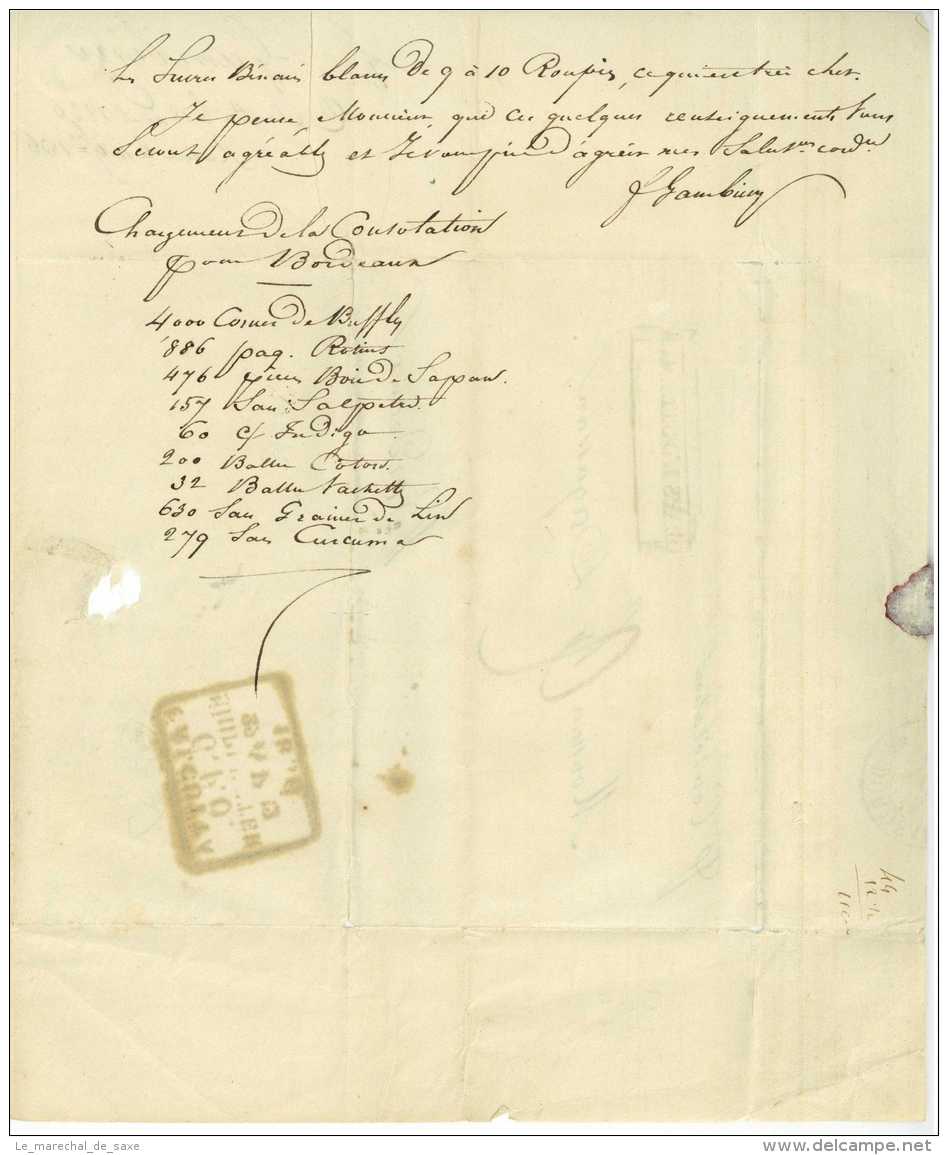 Les Sucres Bénarès blancs de 9 à 10 Roupies, ce qui est très cher.
Je pense, Monsieur, que ces quelques renseignements Vous
Seront agréables et Je vous prie d'agréer mes Salut.ns cord.les
Chargement de la Consolation
pour Bordeaux
4000 Cornes de Buffles
886 paq. Rotins
476 pièces Bois de Sapan.
157 Sacs Salpetre.
60 c/ Indigo
200 Balles Coton.
32 Balles
630 Sacs Graines de Lin
279 Sacs Curcuma
44
Le_marechal_de_saxe
www.delcampe.net